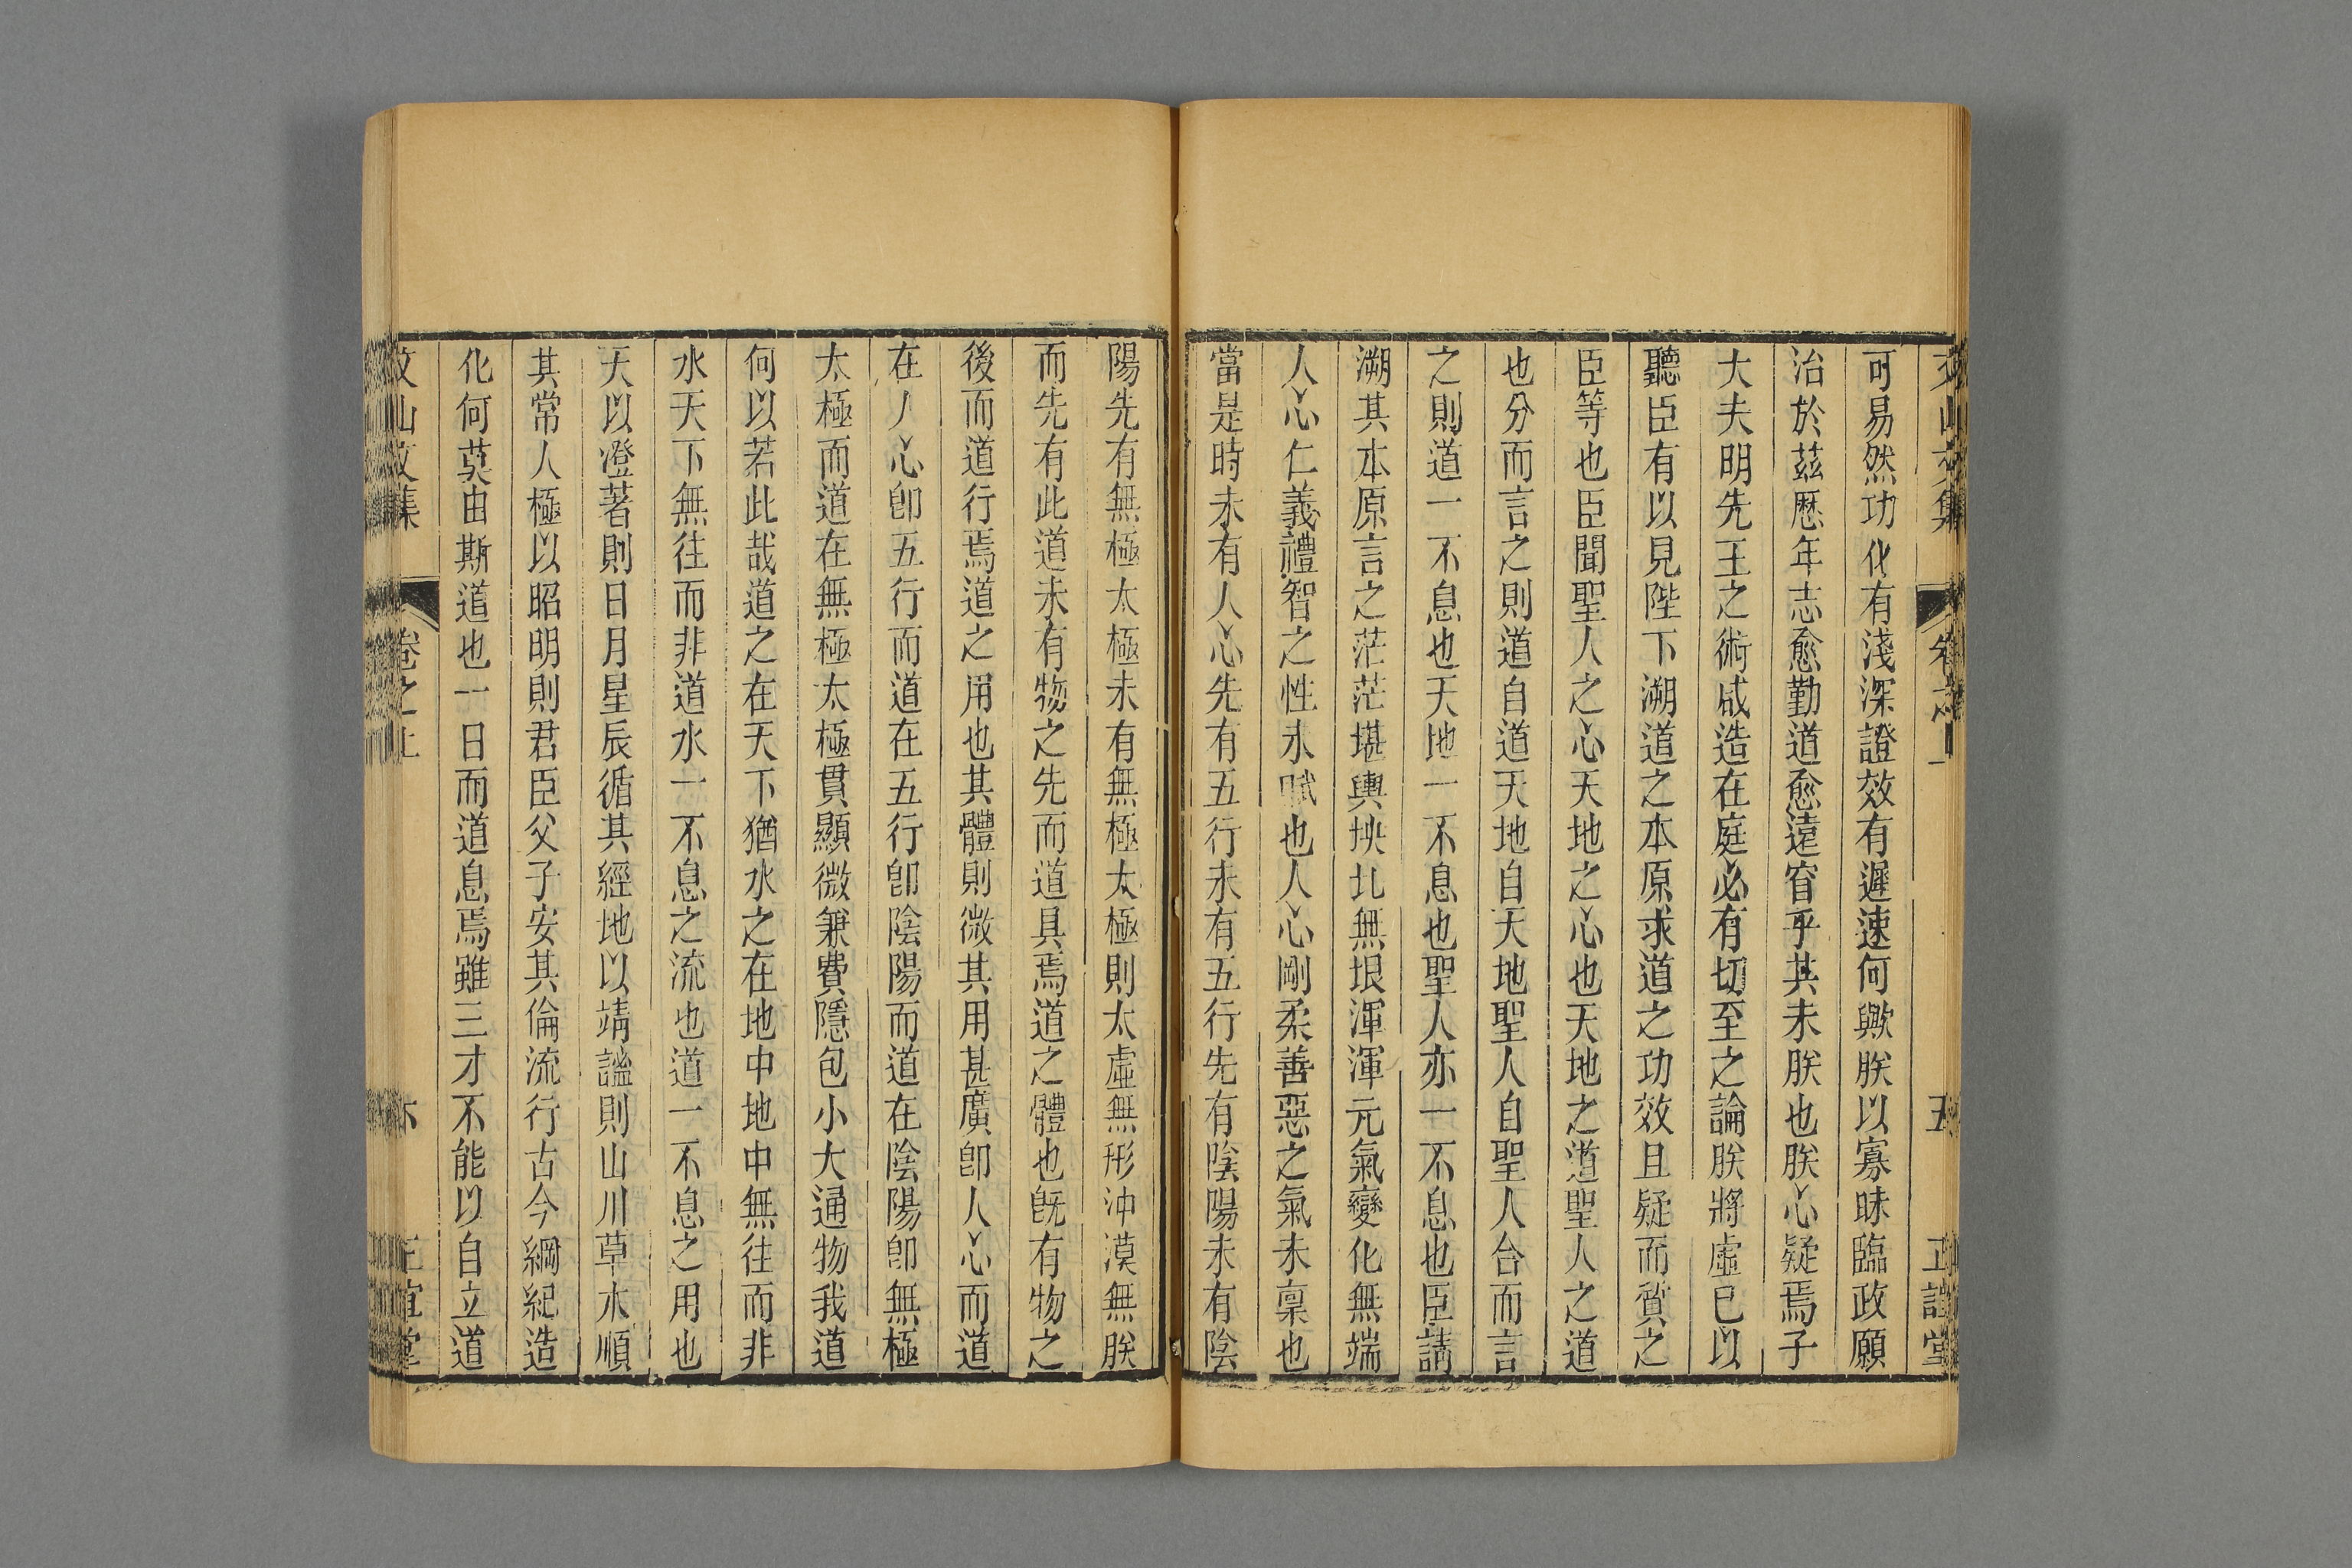 文山文集 卷之上 五 正誼堂
可易然功化有淺深證效有遲速何歟朕以寡昧臨政願
治於兹歷年志愈勤道愈遠窅乎其未朕也朕心疑焉子
大夫明先王之術咸造在庭必有切至之論朕將虛已以
聽臣有以見陛下溯道之本原求道之功效且疑而質之
臣等也臣聞聖人之心天地之心也天地之道聖人之道
也分而言之則道自道天地自天地聖人自聖人合而言
之則道一不息也天地一不息也聖人亦一不息也臣請
溯其本原言之茫茫堪輿坱圠無垠渾渾元氣變化無端
人心仁義禮智之性未賦也人心剛柔善惡之氣未禀也
當是時未有人心先有五行未有五行先有陰陽未有陰
陽先有無極太極未有無極太極則太虛無形沖漠無朕
而先有此道未有物之先而道具焉道之體也旣有物之
後而道行焉道之用也其體則微其用甚廣卽人心而道
在人心卽五行而道在五行卽陰陽而道在陰陽卽無極
太極而道在無極太極貫顯微兼費隱包小大通物我道
何以若此哉道之在天下猶水之在地中地中無往而非
水天下無往而非道水一不息之流也道一不息之用也
天以澄著則日月星辰循其經地以靖謐則山川草木順
其常人極以昭明則君臣父子安其倫流行古今綱紀造
化何莫由斯道也一日而道息焉雖三才不能以自立道
文山文集 卷之上 六 正誼堂